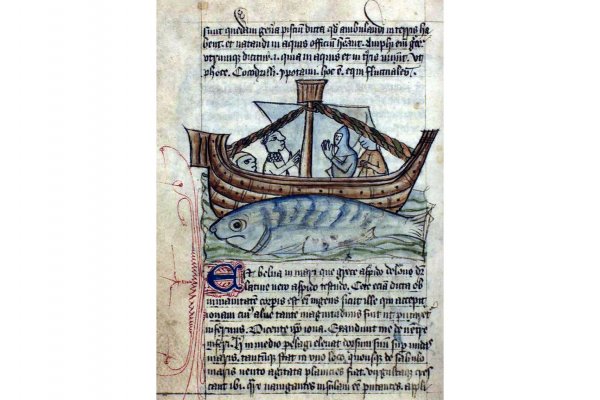 sunt quedam gena pisciu dicta qd ambulandi in terris ha
bent. et natandi in aquis officiu Amphi em gre
dicitur .i. quia in aquis et in tris vt
phoce. Cocodrilli. ypotami. hoc e. equi fluctuales.
Est belua in mari que grece aspido delone dr
latine vero aspido testudo. Cete ecia dicta ob
inmanitate corpis est em ingens sicut ille qui accepit
ionam cui9 alue tante magnitudinis fuit ut putaret
infernus. Dicente ipo iona. Exaudiuit me de ventre
inferi. h in medio pelagi eleuat dorsum suum undas
maris. tantumque stat in uno loco. quousque de sabulo
maris vento agitata planicies fiat. cres
cant ibi. Qre nauigantes insulam ee putantes. appli